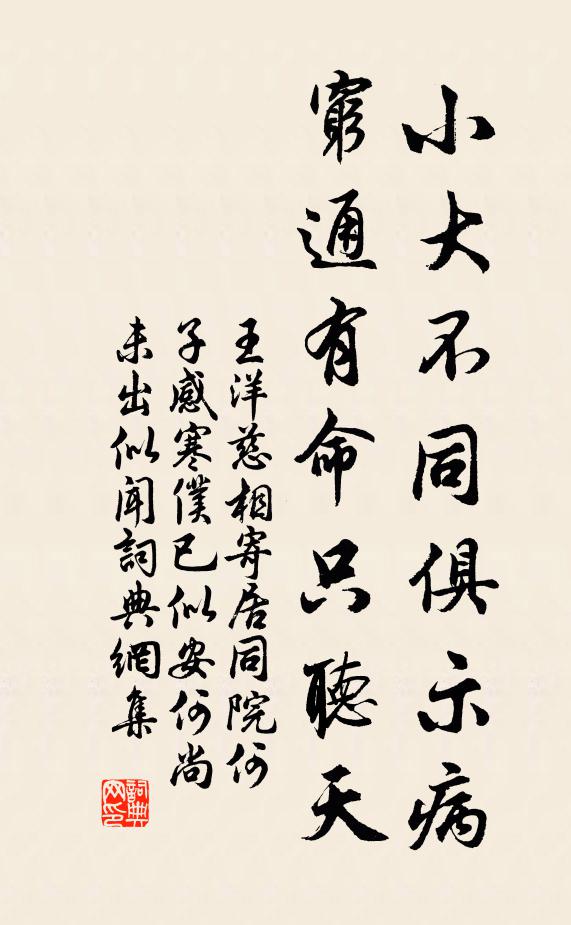 小大不同俱示病
窮通有命只聽天
王洋慈相寄居同院何
子感寒僕已似安何尚
未出似聞詞典網集
詞典
网印